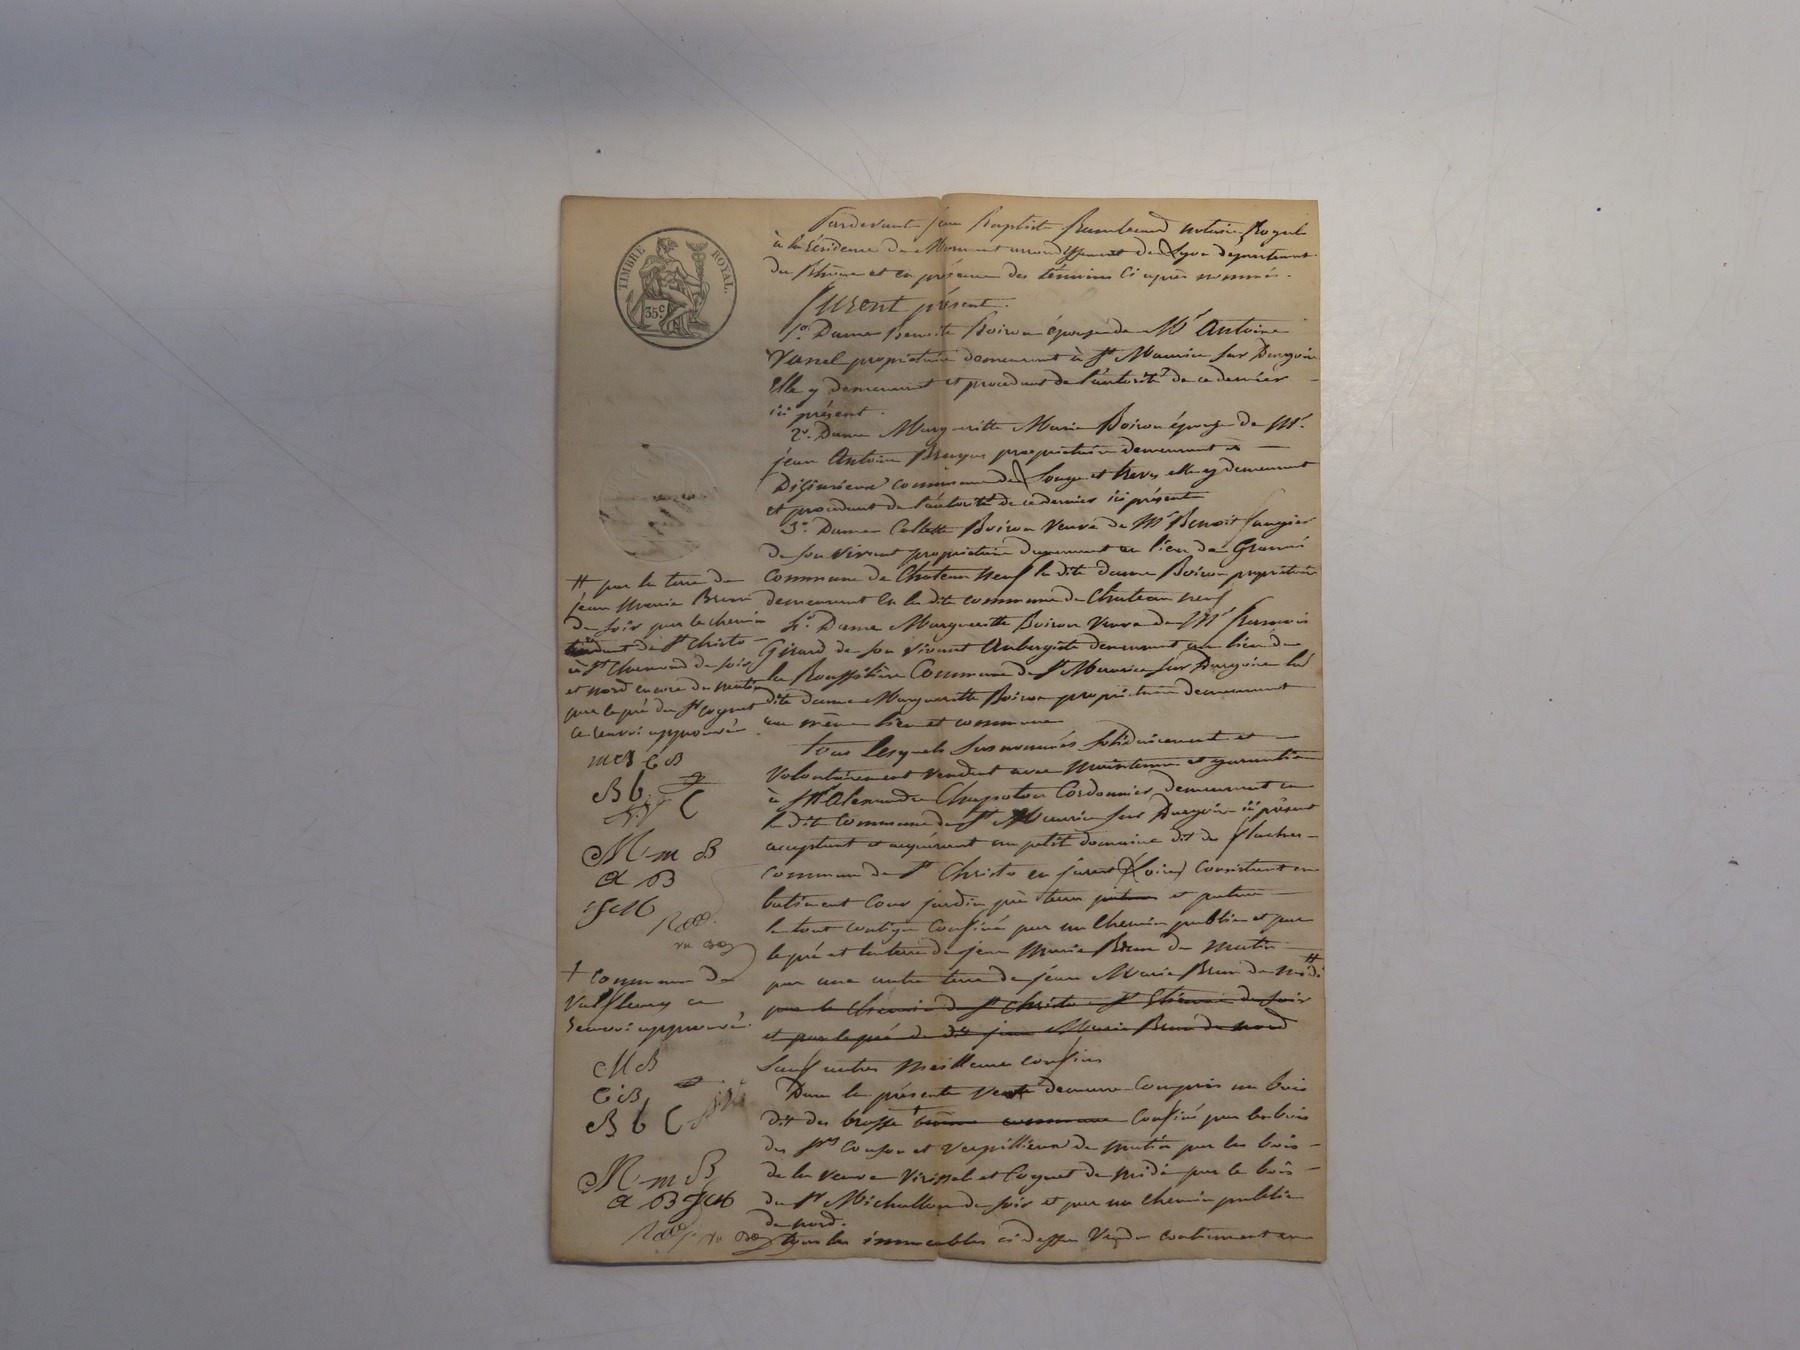 TIMBRE ROYAL.
35 c.
Pardevant Jean Baptiste notaire Royal
à la résidence de Mornant arrondissement de Lyon département
du Rhône et en présence des témoins ci après nommés.
furent présent.
1o. Dame Benoite Boiron épouse de Mr Antoine
Vanel propriétaire demeurant à St Maurice sur Dargoire
Elle y demeurant et procedant de l'autorité de ce dernier
ici présent.
2o. Dame Margueritte Marie Boiron épouse de Mr.
jean Antoine propriétaire demeurant à
commune de et trèves elle y demeurant
et procedant de l'autorité de ce dernier ici présent
3o. Dame Collette Boiron Veuve de Mr Benoit
de son vivant propriétaire demeurant au lieu de
commune de Chateauneuf la dite dame Boiron propriétaire
demeurant en la dite commune de Chateauneuf
4o. Dame Margueritte Boiron Veuve de Mr
Girard de son vivant Aubergiste demeurant au lieu de
la Commune de St Maurice sur Dargoire la
dite dame Margueritte Boiron propriétaire demeurant
au même lieu et commune
Tous lesquels susnommés solidairement et
volontairement vendent avec maintenue et garantie
à Sr Alexandre Chapoton Cordonnier demeurant en
la dite commune de St Maurice sur Dargoire ici présent
acceptant et acquérant un petit domaine dit de
commune de St Christo en jarest (Loire) consistant en
batiment cour jardin pré terre et pature
le tout contigu confiné par un chemin public et par
le pré et la terre de jean Marie Brun du matin
par une autre terre de jean Marie Brun du midi #
par le chemin de St Christo à St Etienne du soir
et par le pré de dit jean Marie Brun du nord
sauf autres meilleurs confins
Dans la présente vente demeure compris un bois
dit des brosse † commune confiné par les bois
des Srs et du matin par les bois
de la veuve et Coquet du midi par le bois
du Sr Michallon du soir et par un chemin public
du nord.
tous les immeubles ci dessus vendus contiennent
# par la terre de
jean Marie Brun
du soir par le chemin
tendant de St Christo
à St Chamond du soir
et nord encore du matin
par le pré du Sr Coquet
ce renvoi approuvé
B b C
M m B
a B
† commune de
Valfleury ce
renvoi approuvé.
M B
C B
B b C
M m B
a B